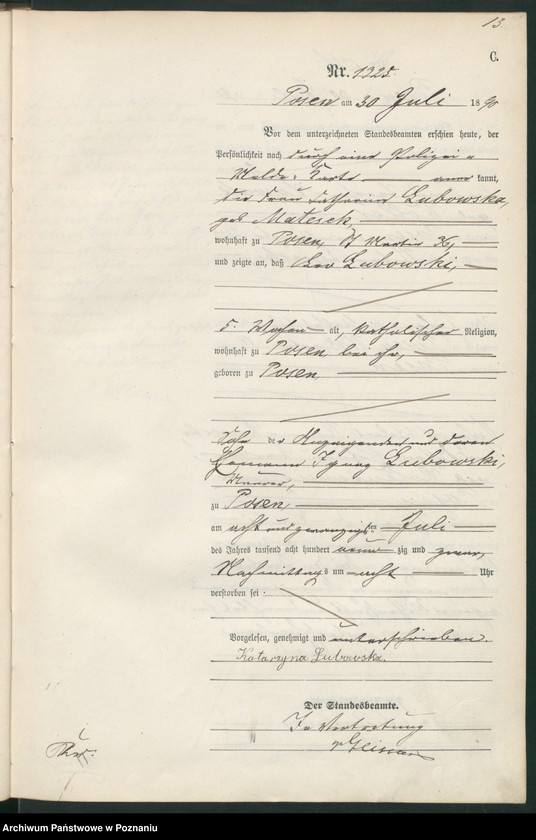 13
C.
Nr. 1325
Posen am 30 Juli 1890
Vor dem unterzeichneten Standesbeamten erschien heute, der
Persönlichkeit nach durch eine Polizei-
Melde-Karte kannt,
die Frau Catharina Lubowska,
geb Matecek,
wohnhaft zu Posen, St Martin 36,
und zeigte an, daß Leo Lubowski,
5. Wochen alt, katholischer Religion,
wohnhaft zu Posen, bei ihr,
geboren zu Posen,
Sohn der Anzeigenden und deren
Ehemann Ignaz Lubowski,
Maurer,
zu Posen,
am acht und zwanzigsten Juli
des Jahres tausend acht hundert neunzig und zwar,
Nachmittags um acht Uhr
verstorben sei
Vorgelesen, genehmigt und unterschrieben.
Katarzyna Lubowska.
Der Standesbeamte.
In Vertretung
Archiwum Państwowe w Poznaniu